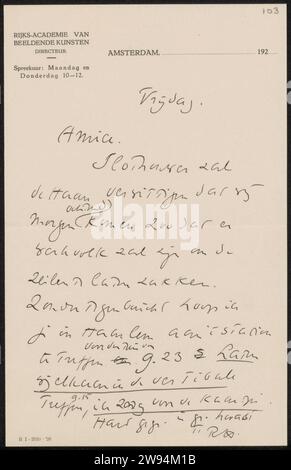 103
RIJKS-ACADEMIE VAN
BEELDENDE KUNSTEN
DIRECTEUR.
Spreekuur: Maandag en
Donderdag 10—12.
AMSTERDAM, 192
Vrijdag.
Amice.
Slothouwer zal
de Haan verwittigen dat wij
morgen komen zoodat er
werkvolk zal zijn om de
zeilen te laten zakken.
Zondag hoop ik
je in Haarlem aan't station
te treffen 9.23 Laten
wij elkaar in de vestibule
treffen, ik zorg voor de kaartjes.
Hart. gr.
R
B 1 - 2000 - '28
alamy
2E94M1B